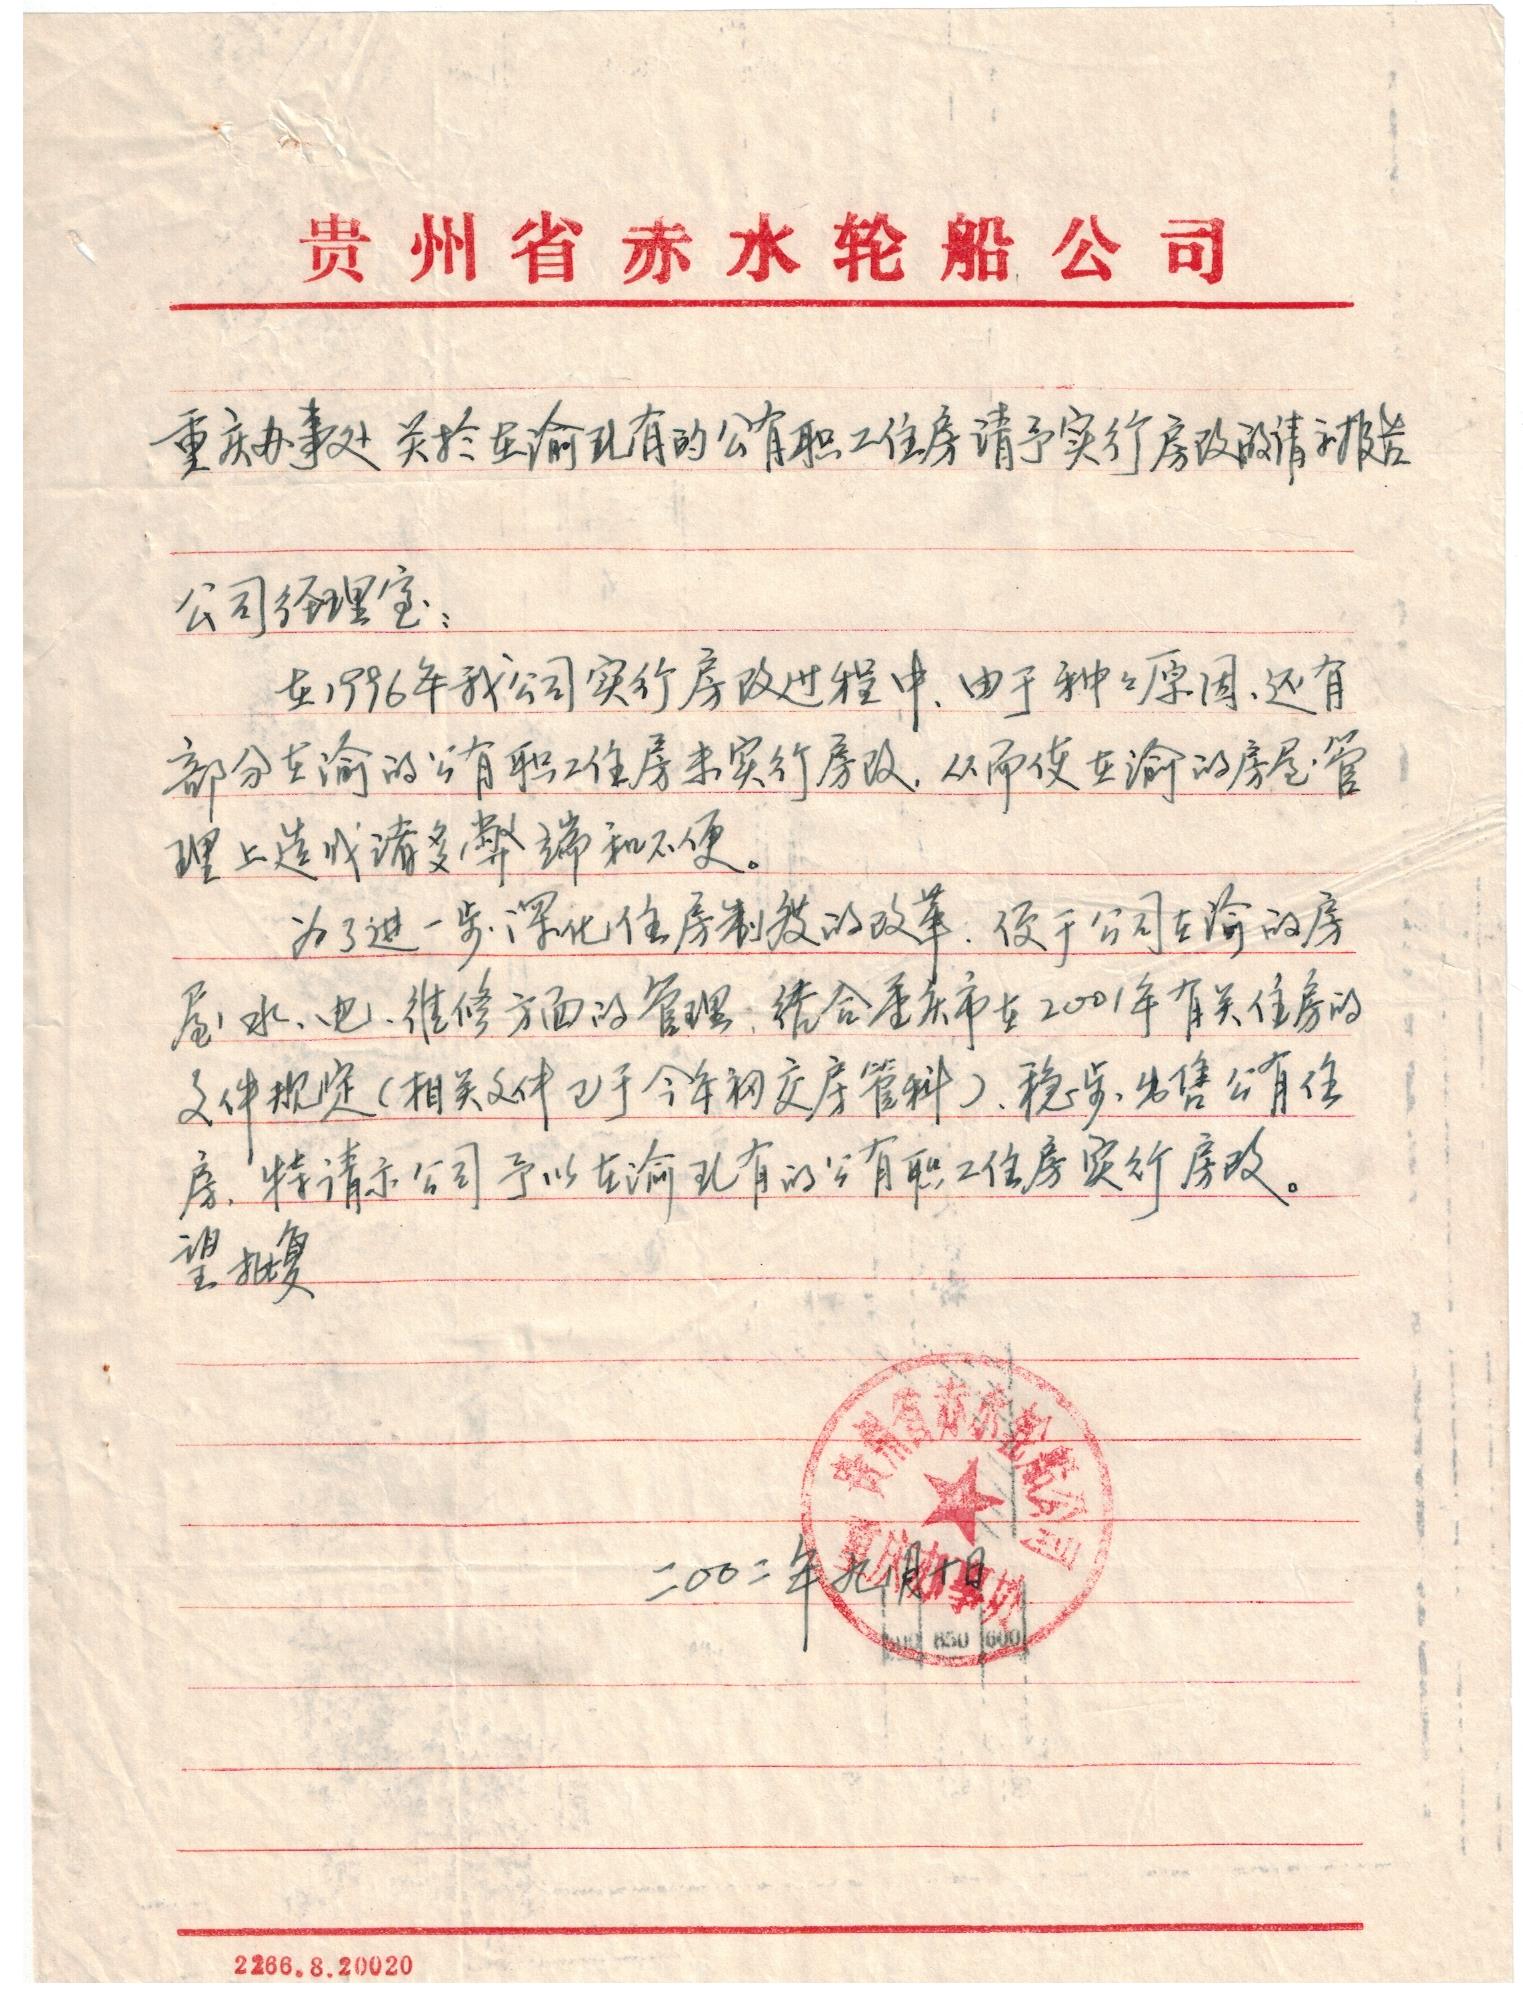 贵州省赤水轮船公司
重庆办事处关於在渝现有的公有职工住房请予实行房改的请示报告
公司经理室：
在1996年我公司实行房改过程中、由于种々原因、还有
部分在渝的公有职工住房未实行房改，从而使在渝的房屋管
理上造成诸多弊端和不便。
为了进一步深化住房制度的改革、便于公司在渝的房
屋、水、电、维修方面的管理，结合重庆市在2001年有关住房的
文件规定（相关文件已于今年初交房管科）、稳步出售公有住
房，特请示公司予以在渝现有的公有职工住房实行房改。
望批复
贵州省赤水轮船公司
重庆办事处
二00二年九月十日
850 600
2266.8.20020